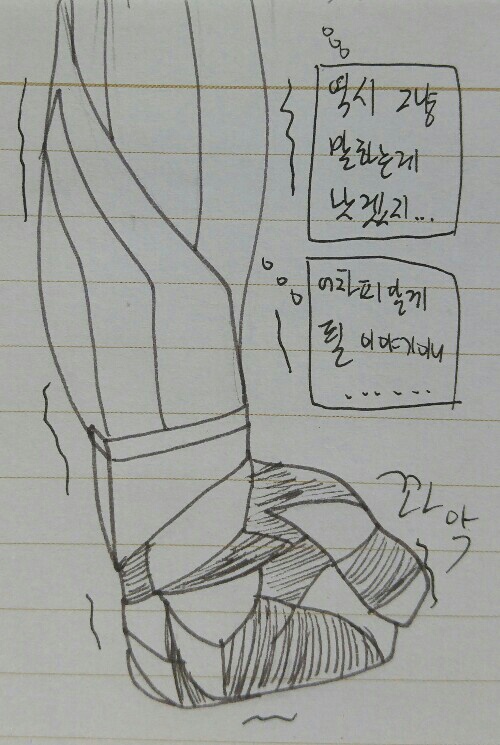 역시 그냥
말하는게
낫겠지...
어차피 알게
될 이야기이니
......
꽈
악